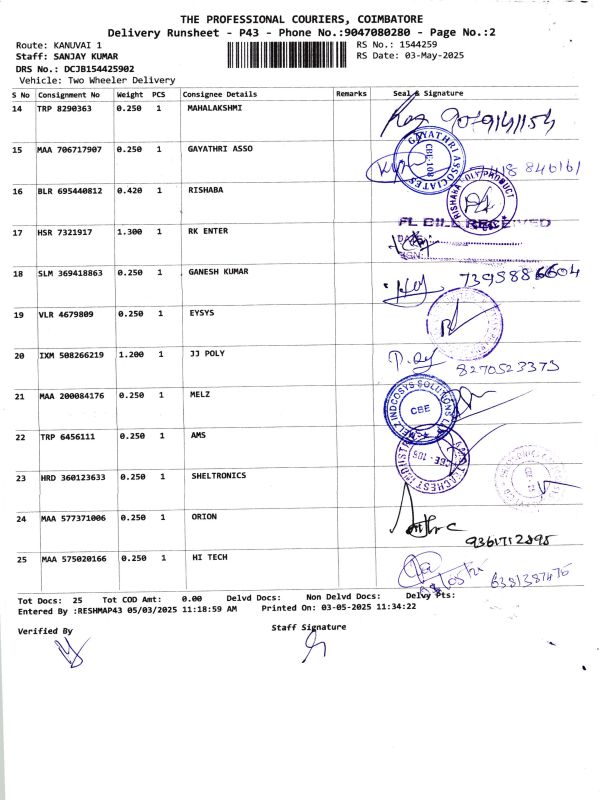 THE PROFESSIONAL COURIERS, COIMBATORE
Delivery Runsheet - P43 - Phone No.:9047080280 - Page No.:2
Route: KANUVAI 1 RS No.: 1544259
Staff: SANJAY KUMAR RS Date: 03-May-2025
DRS No.: DCJB154425902
Vehicle: Two Wheeler Delivery
S No Consignment No Weight PCS Consignee Details Remarks Seal & Signature
14 TRP 8290363 0.250 1 MAHALAKSHMI
15 MAA 706717907 0.250 1 GAYATHRI ASSO GAYATHRI ASSOCIATES CBE-108
16 BLR 695440812 0.420 1 RISHABA RISHABA POLY PRODUCT
17 HSR 7321917 1.300 1 RK ENTER FL BILL RECEIVED
DATE:
SIGN:
18 SLM 369418863 0.250 1 GANESH KUMAR 7395886604
19 VLR 4679809 0.250 1 EYSYS
20 IXM 508266219 1.200 1 JJ POLY 8270523373
21 MAA 200084176 0.250 1 MELZ MELZ INDCOSYS SOLUTIONS CBE
22 TRP 6456111 0.250 1 AMS CBE - 105
23 HRD 360123633 0.250 1 SHELTRONICS
24 MAA 577371006 0.250 1 ORION
25 MAA 575020166 0.250 1 HI TECH 6381387476
Tot Docs: 25 Tot COD Amt: 0.00 Delvd Docs: Non Delvd Docs: Delvy Pts:
Entered By :RESHMAP43 05/03/2025 11:18:59 AM Printed On: 03-05-2025 11:34:22
Verified By Staff Signature